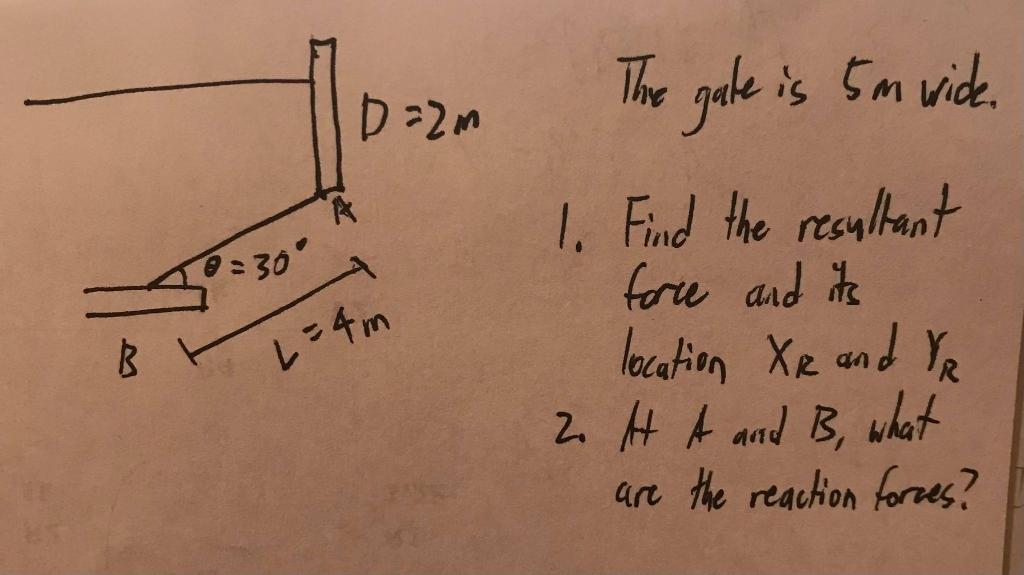 The gate is 5m wide.
D = 2m
A
θ = 30°
L = 4m
B
1. Find the resultant
force and its
location XR and YR
2. At A and B, what
are the reaction forces?